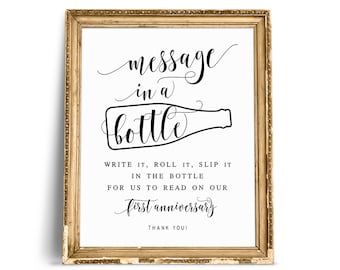 message
in a
bottle
WRITE IT, ROLL IT, SLIP IT
IN THE BOTTLE
FOR US TO READ ON OUR
first anniversary
THANK YOU!